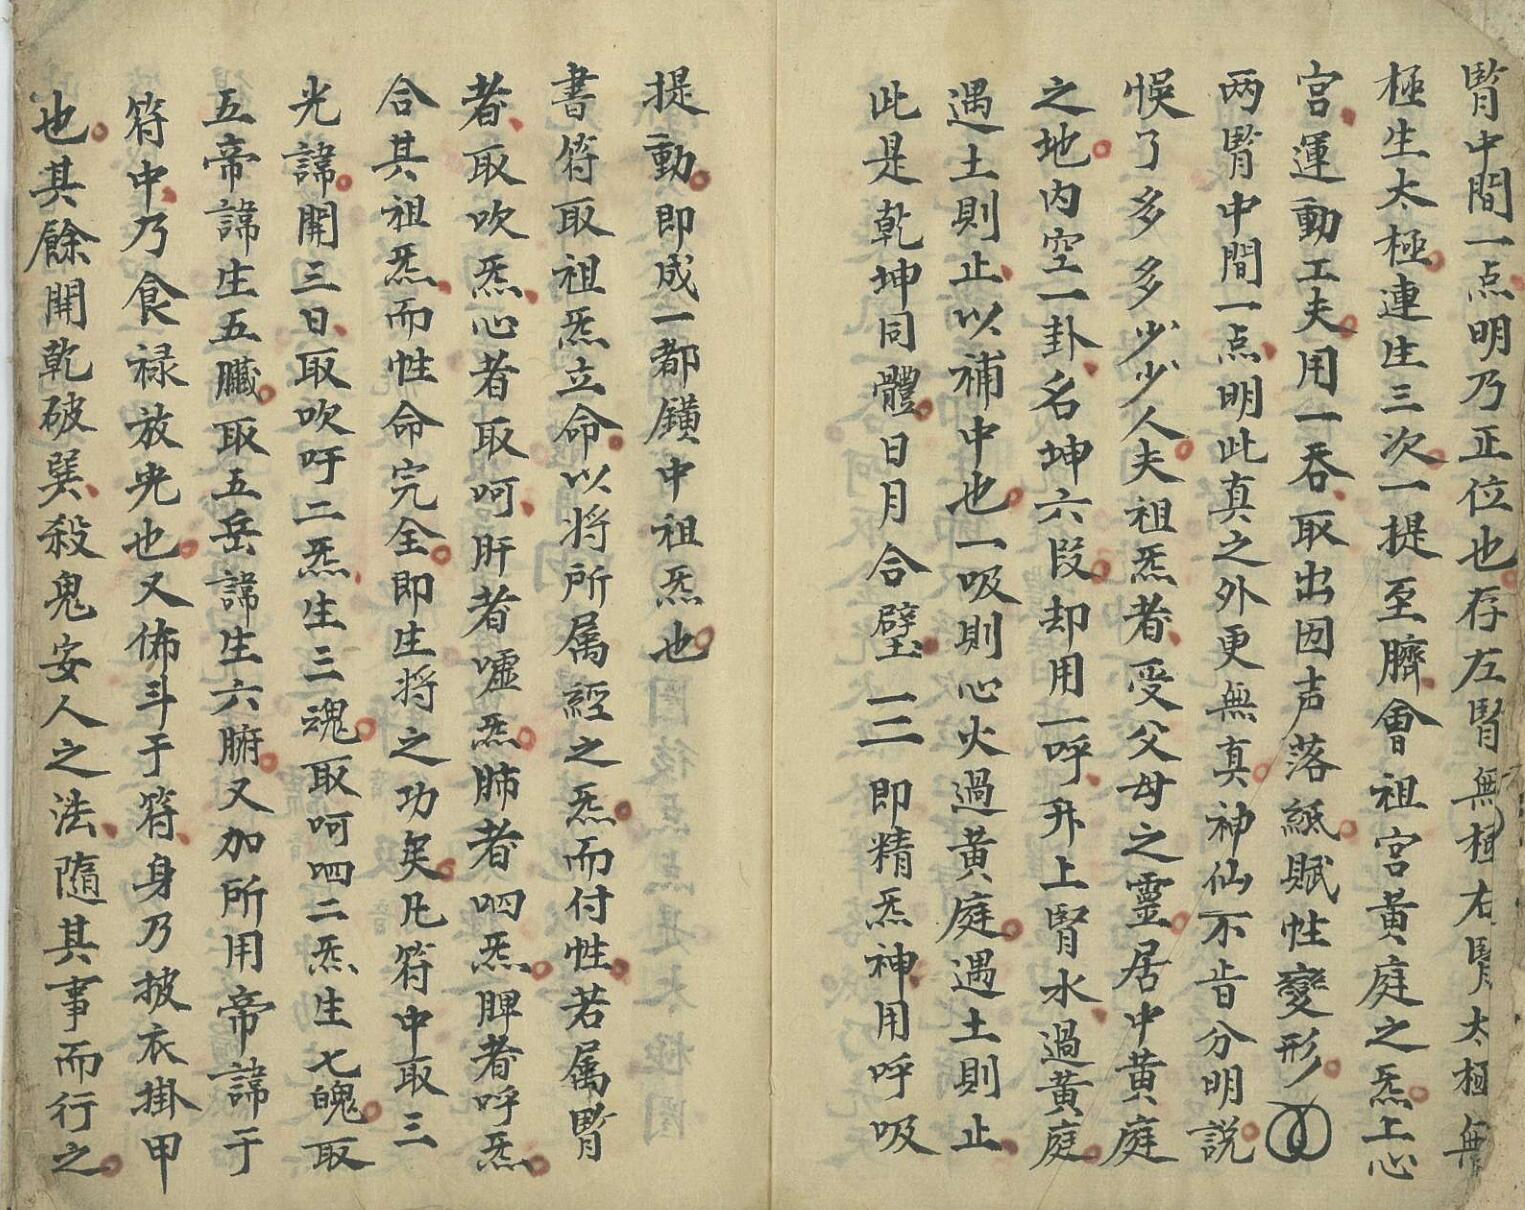 腎中間一点明乃正位也存左腎無極右腎太極無
極生太極連生三次一提至臍會祖宮黃庭之炁上心
宮運動工夫用一吞取出因声落紙賦性變形
两腎中間一点明此真之外更無真神仙不肯分明説
悞了多多少少人夫祖炁者受父母之靈居中黄庭
之地内空一卦名坤六段却用一呼升上腎水過黄庭
遇土則止以補中也一吸則心火過黄庭遇土則止
此是乾坤同體日月合璧三即精炁神用呼吸
提動即成一都鐄中祖炁也
書符取祖炁立命以将所属經之炁而付性若属腎
者取吹炁心者取呵肝者嘘炁肺者呬炁脾者呼炁
合其祖炁而性命完全即生将之功矣凡符中取三
光諱開三日取吹吁二炁生三魂取呵呬二炁生七魄取
五帝諱生五臟取五岳諱生六腑又加所用帝諱于
符中乃食禄放光也又佈斗于符身乃披衣掛甲
也其餘開乾破巽殺鬼安人之法隨其事而行之